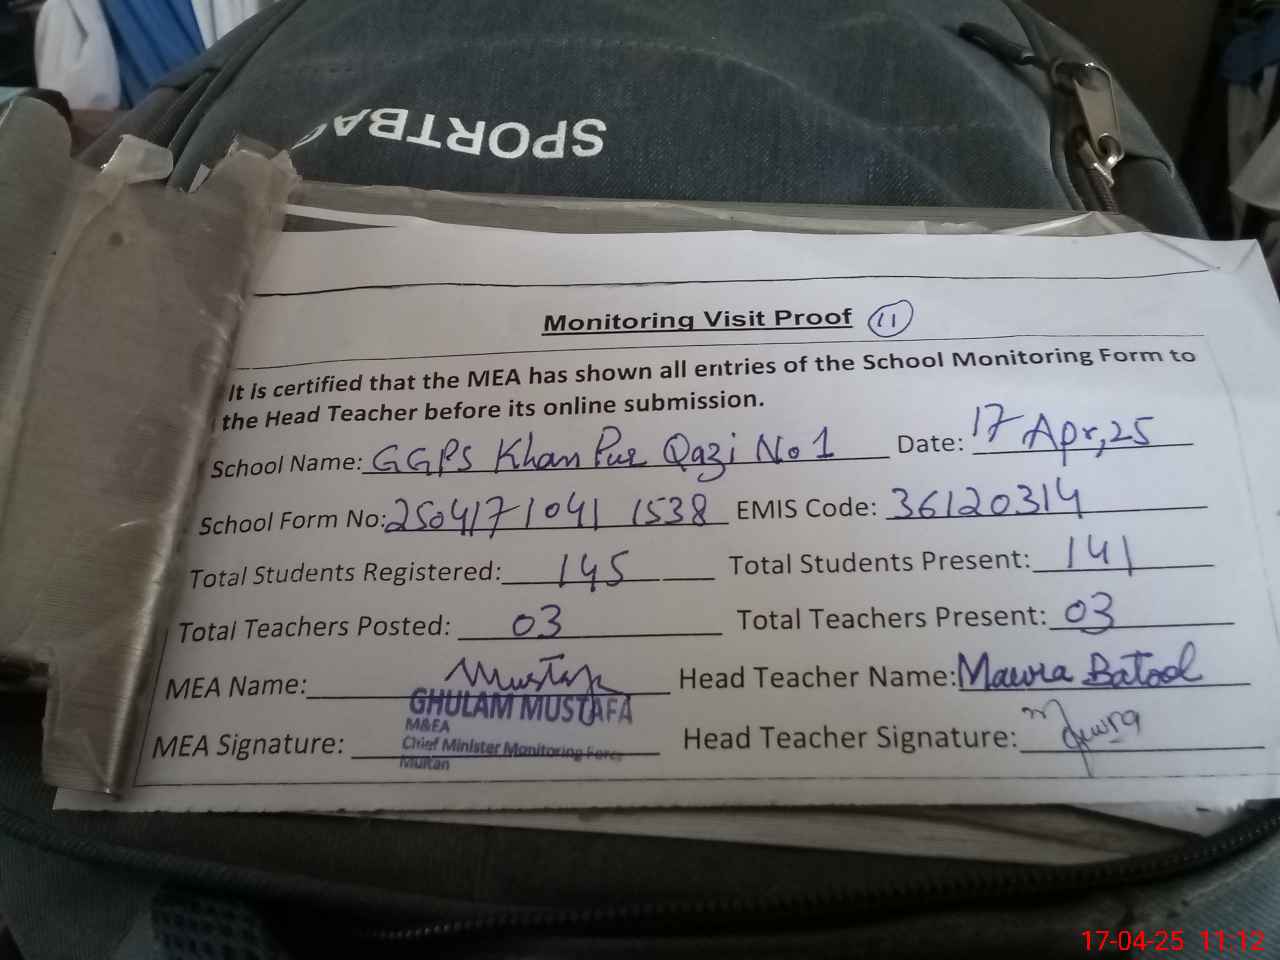 SPORTBA
Monitoring Visit Proof 11
It is certified that the MEA has shown all entries of the School Monitoring Form to
the Head Teacher before its online submission.
School Name: GGPS Khan Pur Qazi No 1 Date: 17 Apr, 25
School Form No: 2504171041 1538 EMIS Code: 36120314
Total Students Registered: 145 Total Students Present: 141
Total Teachers Posted: 03 Total Teachers Present: 03
MEA Name: Mustafa Head Teacher Name: Mawra Batool
GHULAM MUSTAFA
M&EA
Chief Minister Monitoring Force
Multan
MEA Signature: Head Teacher Signature:
17-04-25 11:12